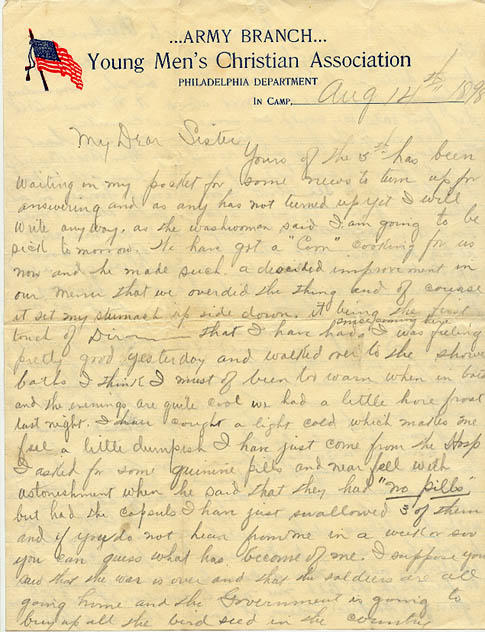 ...ARMY BRANCH...
Young Men's Christian Association
PHILADELPHIA DEPARTMENT
IN CAMP, Aug 14th 1898
My Dear Sister
Yours of the 5th has been
waiting in my pocket for some news to turn up for
answering and as any has not turned up yet I will
write any way. as the washwoman said I am going to be
sick to morrow. We have got a "Coon" cooking for us
now and he made such a decided improvement in
our menu that we overdid the thing and of course
it set my stumash up side down. it being the first
touch of that I have had since coming here I was feeling
pretty good yesterday and walked over to the shower
baths I think I must of been too warm when in bath
and the evenings are quite cool we had a little hore frost
last night. I have cought a light cold which makes me
feel a little dumpish I have just come from the Hosp
I asked for some quinine pills and near fell with
astonishment when he said that they had "no pills"
but had the capsuls I have just swallowed 3 of them
and if you do not hear from me in a week or soo
you can guess what has become of me. I suppose you
read that the war is over and that the soldiers are all
going home and the Government is going to
buy up all the bird seed in the country